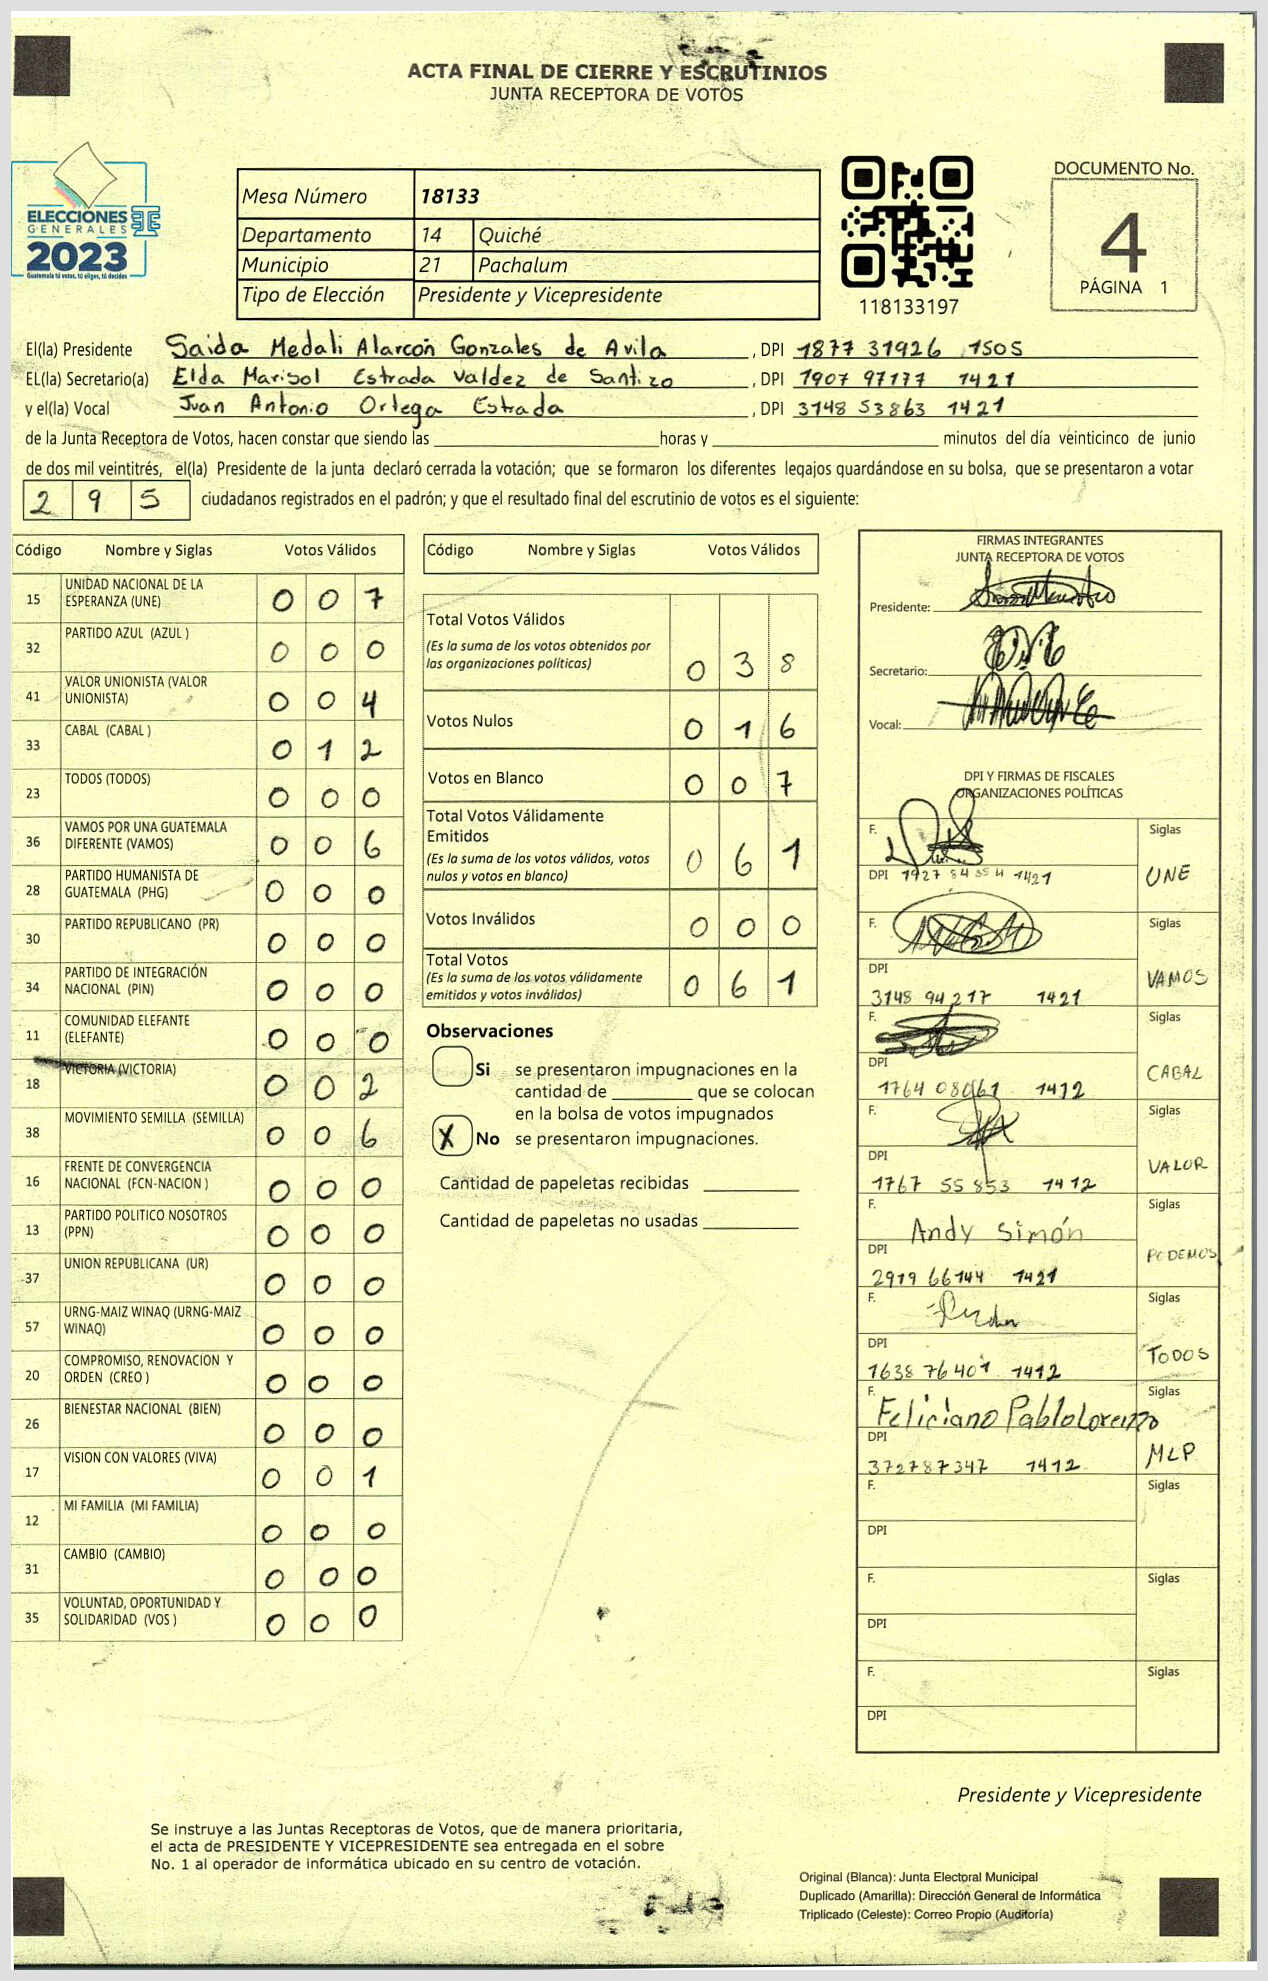 ACTA FINAL DE CIERRE Y ESCRUTINIOS
JUNTA RECEPTORA DE VOTOS
ELECCIONES
GENERALES
2023
Guatemala tú votas, tú eliges, tú decides
Mesa Número 18133
Departamento 14 Quiché
Municipio 21 Pachalum
Tipo de Elección Presidente y Vicepresidente
118133197
DOCUMENTO No.
4
PÁGINA 1
El(la) Presidente Saida Medali Alarcón Gonzales de Avila , DPI 1877 31926 1505
EL(la) Secretario(a) Elda Marisol Estrada Valdez de Santizo , DPI 1907 97177 1421
y el(la) Vocal Juan Antonio Ortega Estrada , DPI 3148 53863 1421
de la Junta Receptora de Votos, hacen constar que siendo las horas y minutos del día veinticinco de junio
de dos mil veintitrés, el(la) Presidente de la junta declaró cerrada la votación; que se formaron los diferentes legajos guardándose en su bolsa, que se presentaron a votar
2 9 5 ciudadanos registrados en el padrón; y que el resultado final del escrutinio de votos es el siguiente:
Código Nombre y Siglas Votos Válidos
15 UNIDAD NACIONAL DE LA ESPERANZA (UNE) 0 0 7
32 PARTIDO AZUL (AZUL ) 0 0 0
41 VALOR UNIONISTA (VALOR UNIONISTA) 0 0 4
33 CABAL (CABAL ) 0 1 2
23 TODOS (TODOS) 0 0 0
36 VAMOS POR UNA GUATEMALA DIFERENTE (VAMOS) 0 0 6
28 PARTIDO HUMANISTA DE GUATEMALA (PHG) 0 0 0
30 PARTIDO REPUBLICANO (PR) 0 0 0
34 PARTIDO DE INTEGRACIÓN NACIONAL (PIN) 0 0 0
11 COMUNIDAD ELEFANTE (ELEFANTE) 0 0 0
18 VICTORIA (VICTORIA) 0 0 2
38 MOVIMIENTO SEMILLA (SEMILLA) 0 0 6
16 FRENTE DE CONVERGENCIA NACIONAL (FCN-NACION ) 0 0 0
13 PARTIDO POLITICO NOSOTROS (PPN) 0 0 0
37 UNION REPUBLICANA (UR) 0 0 0
57 URNG-MAIZ WINAQ (URNG-MAIZ WINAQ) 0 0 0
20 COMPROMISO, RENOVACION Y ORDEN (CREO ) 0 0 0
26 BIENESTAR NACIONAL (BIEN) 0 0 0
17 VISION CON VALORES (VIVA) 0 0 1
12 MI FAMILIA (MI FAMILIA) 0 0 0
31 CAMBIO (CAMBIO) 0 0 0
35 VOLUNTAD, OPORTUNIDAD Y SOLIDARIDAD (VOS ) 0 0 0
Código Nombre y Siglas Votos Válidos
Total Votos Válidos
(Es la suma de los votos obtenidos por
las organizaciones políticas) 0 3 8
Votos Nulos 0 1 6
Votos en Blanco 0 0 7
Total Votos Válidamente
Emitidos
(Es la suma de los votos válidos, votos
nulos y votos en blanco) 0 6 1
Votos Inválidos 0 0 0
Total Votos
(Es la suma de los votos válidamente
emitidos y votos inválidos) 0 6 1
Observaciones
Si se presentaron impugnaciones en la
cantidad de que se colocan
en la bolsa de votos impugnados
X No se presentaron impugnaciones.
Cantidad de papeletas recibidas
Cantidad de papeletas no usadas
FIRMAS INTEGRANTES
JUNTA RECEPTORA DE VOTOS
Presidente:
Secretario:
Vocal:
DPI Y FIRMAS DE FISCALES
ORGANIZACIONES POLÍTICAS
F. Siglas
DPI 1927 84 1421 UNE
F. Siglas
DPI
3148 94217 1421 VAMOS
F. Siglas
DPI
1764 08061 1412 CABAL
F. Siglas
DPI
1767 55 853 1412 VALOR
F. Andy Simón Siglas
DPI
2919 66144 1421 PODEMOS
F. Siglas
DPI
1638 76401 1412 TODOS
F. Feliciano Pablo Lorenzo Siglas
DPI
372787347 1412 MLP
F. Siglas
DPI
F. Siglas
DPI
F. Siglas
DPI
Presidente y Vicepresidente
Se instruye a las Juntas Receptoras de Votos, que de manera prioritaria,
el acta de PRESIDENTE Y VICEPRESIDENTE sea entregada en el sobre
No. 1 al operador de informática ubicado en su centro de votación.
Original (Blanca): Junta Electoral Municipal
Duplicado (Amarilla): Dirección General de Informática
Triplicado (Celeste): Correo Propio (Auditoría)